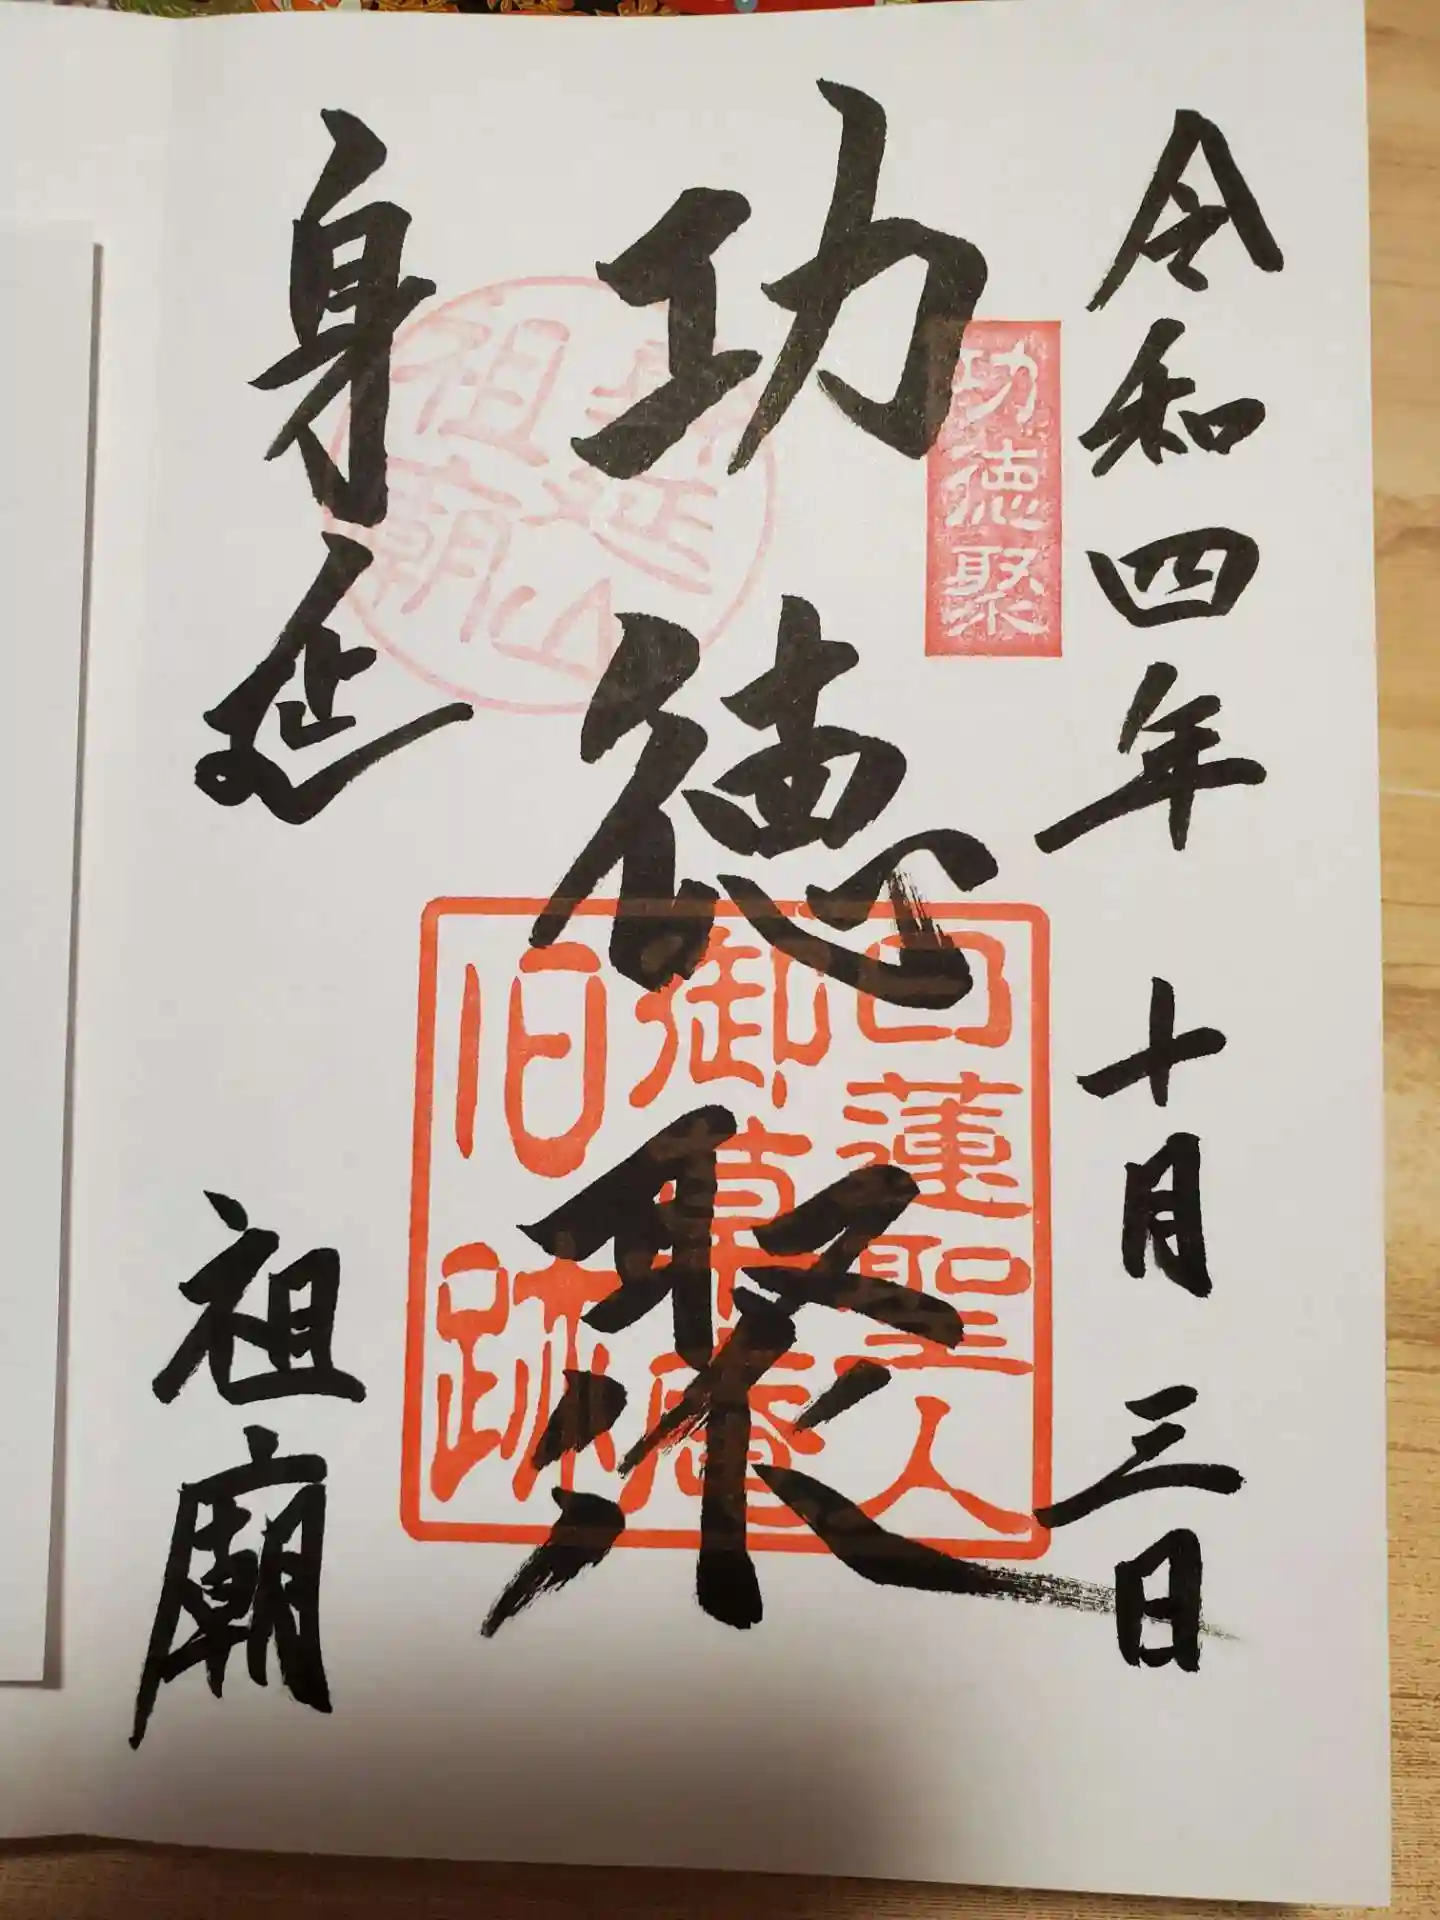 令和四年 十月 三日
功徳聚
功徳聚
身延山
祖廟
日蓮聖人
御草庵
旧跡
身延 祖廟